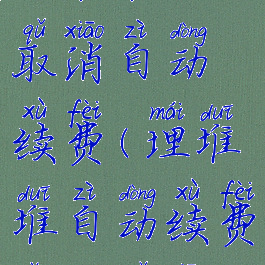 qǔ xiāo zì dòng
取消自动
xù fèi mái duī
续费(埋堆
duī zì dòng xù fèi
堆自动续费